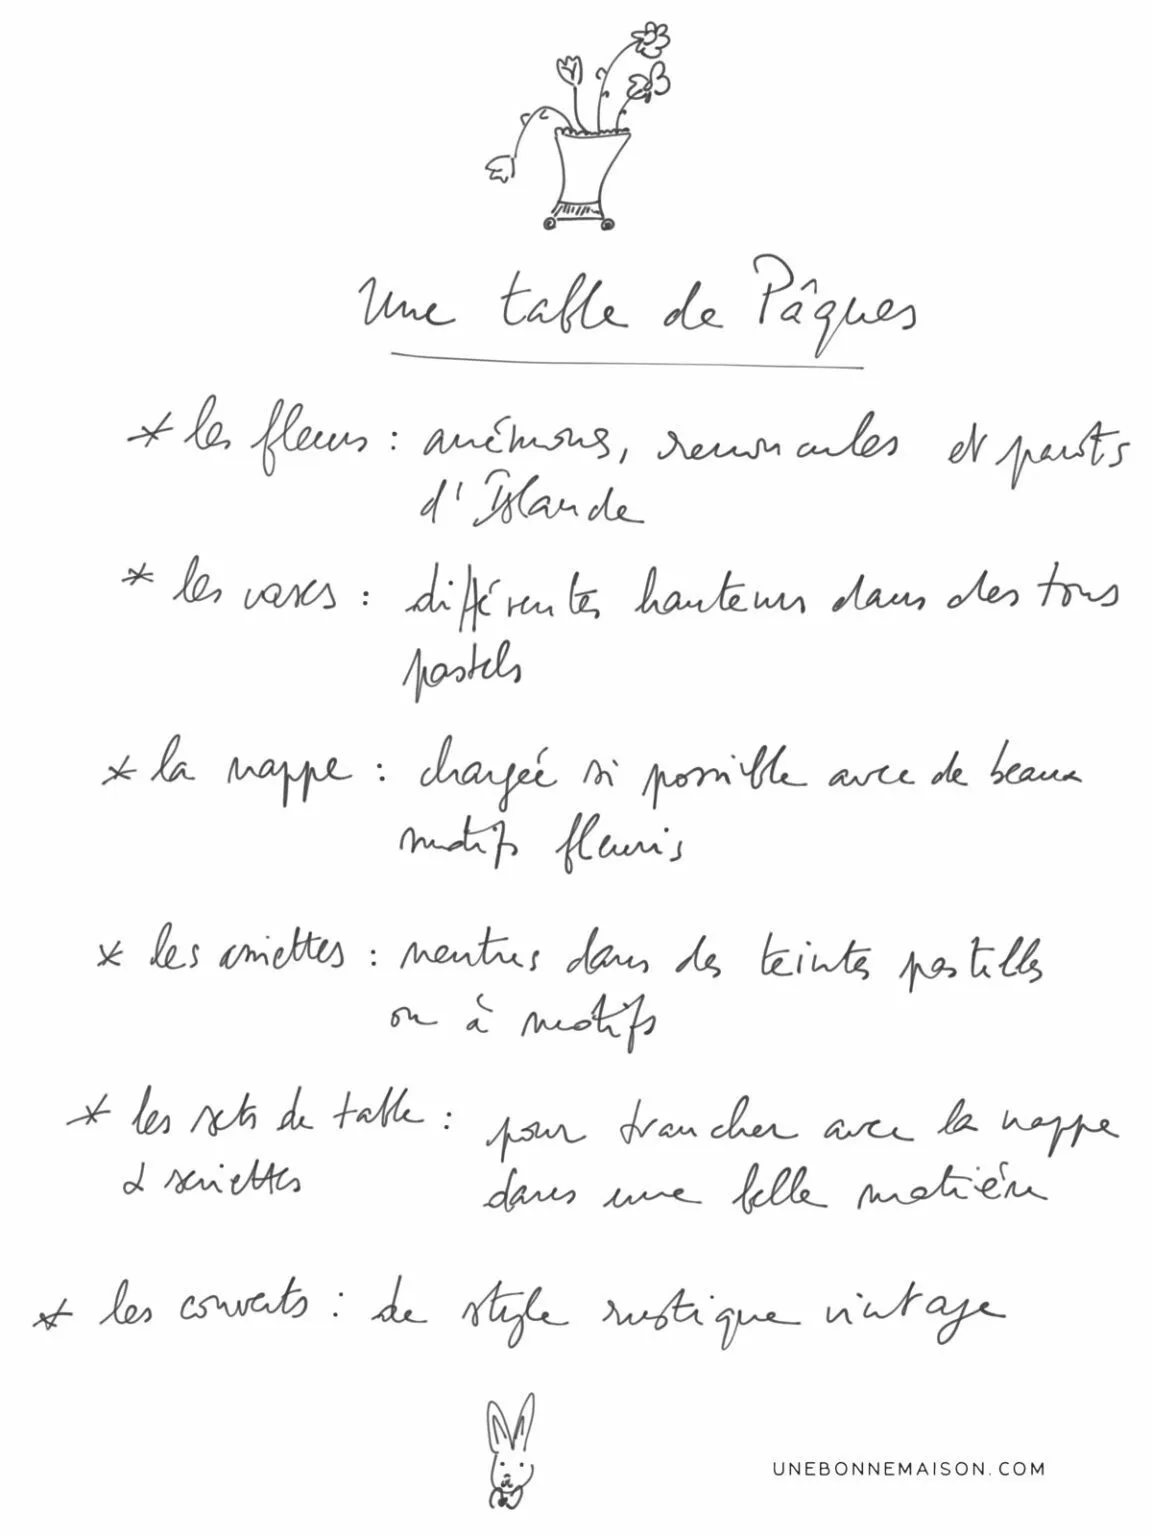 Une table de Pâques
* les fleurs : anémones, renoncules et pavots
d'Islande
* les vases : différentes hauteurs dans des tons
pastels
* la nappe : chargée si possible avec de beaux
motifs fleuris
* les assiettes : neutres dans des teintes pastelles
ou à motifs
* les sets de table : pour trancher avec la nappe
& serviettes dans une belle matière
* les couverts : de style rustique vintage
UNEBONNEMAISON.COM